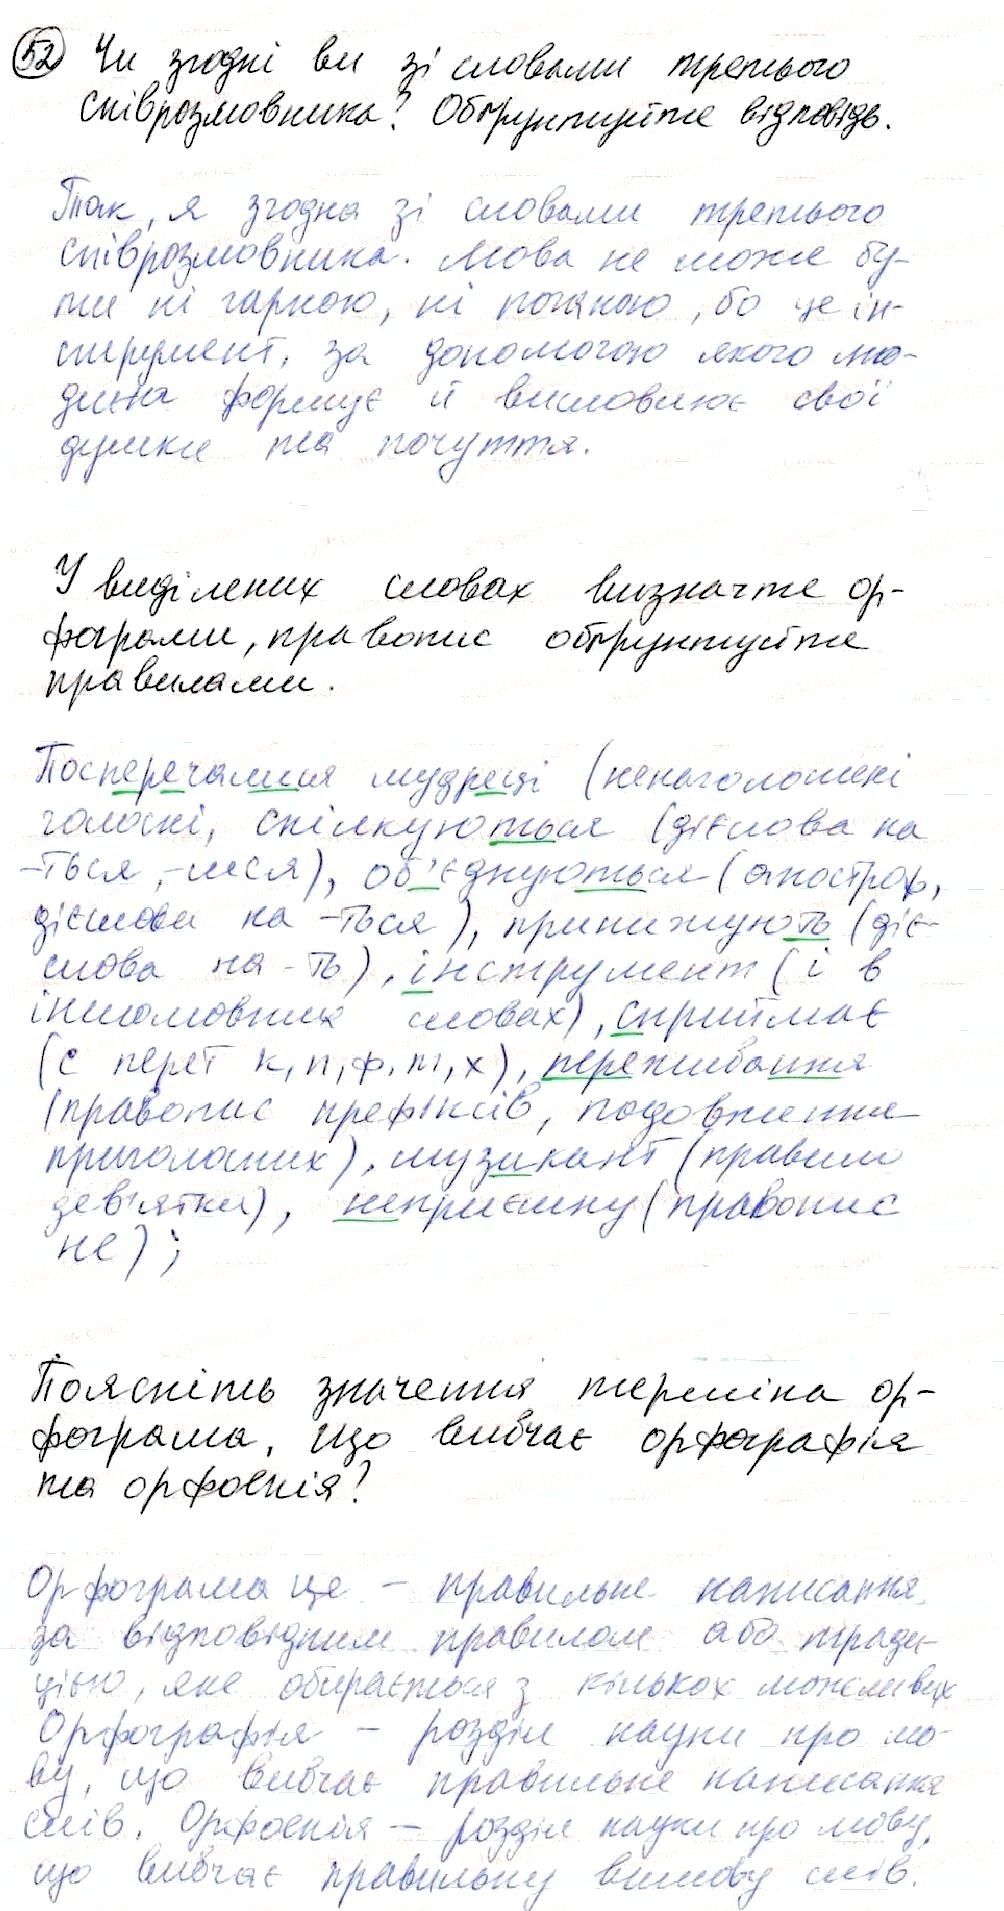 52 Чи згодні ви зі словами третього
співрозмовника? Обґрунтуйте відповідь.
Так, я згодна зі словами третього
співрозмовника. Мова не може бу-
ти ні гарною, ні поганою, бо це ін-
струмент, за допомогою якого лю-
дина формує й висловлює свої
думки та почуття.
У виділених словах визначте ор-
фограми, правопис обґрунтуйте
правилами.
Посперечалися мудреці (ненаголошені
голосні, спілкуються (дієслова на
-ться, -шся), об'єднуються (апостроф,
дієслови на -ться), принижують (діє-
слова на -ть), інструмент (і в
іншомовних словах), сприймає
(с перет к, п, ф, т, х), переживання
(правопис префіксів, подовження
приголосних), музикант (правило
дев'ятки), неприємну (правопис
не);
Поясніть значення терміна ор-
фограма, що вивчає орфографія
та орфоепія?
Орфограма це - правильне написання
за відповідним правилом або тради-
цією, яке обирається з кількох можливих
Орфографія - розділ науки про мо-
ву, що вивчає правильне написання
слів. Орфоепія - розділ науки про мову,
що вивчає правильну вимову слів.